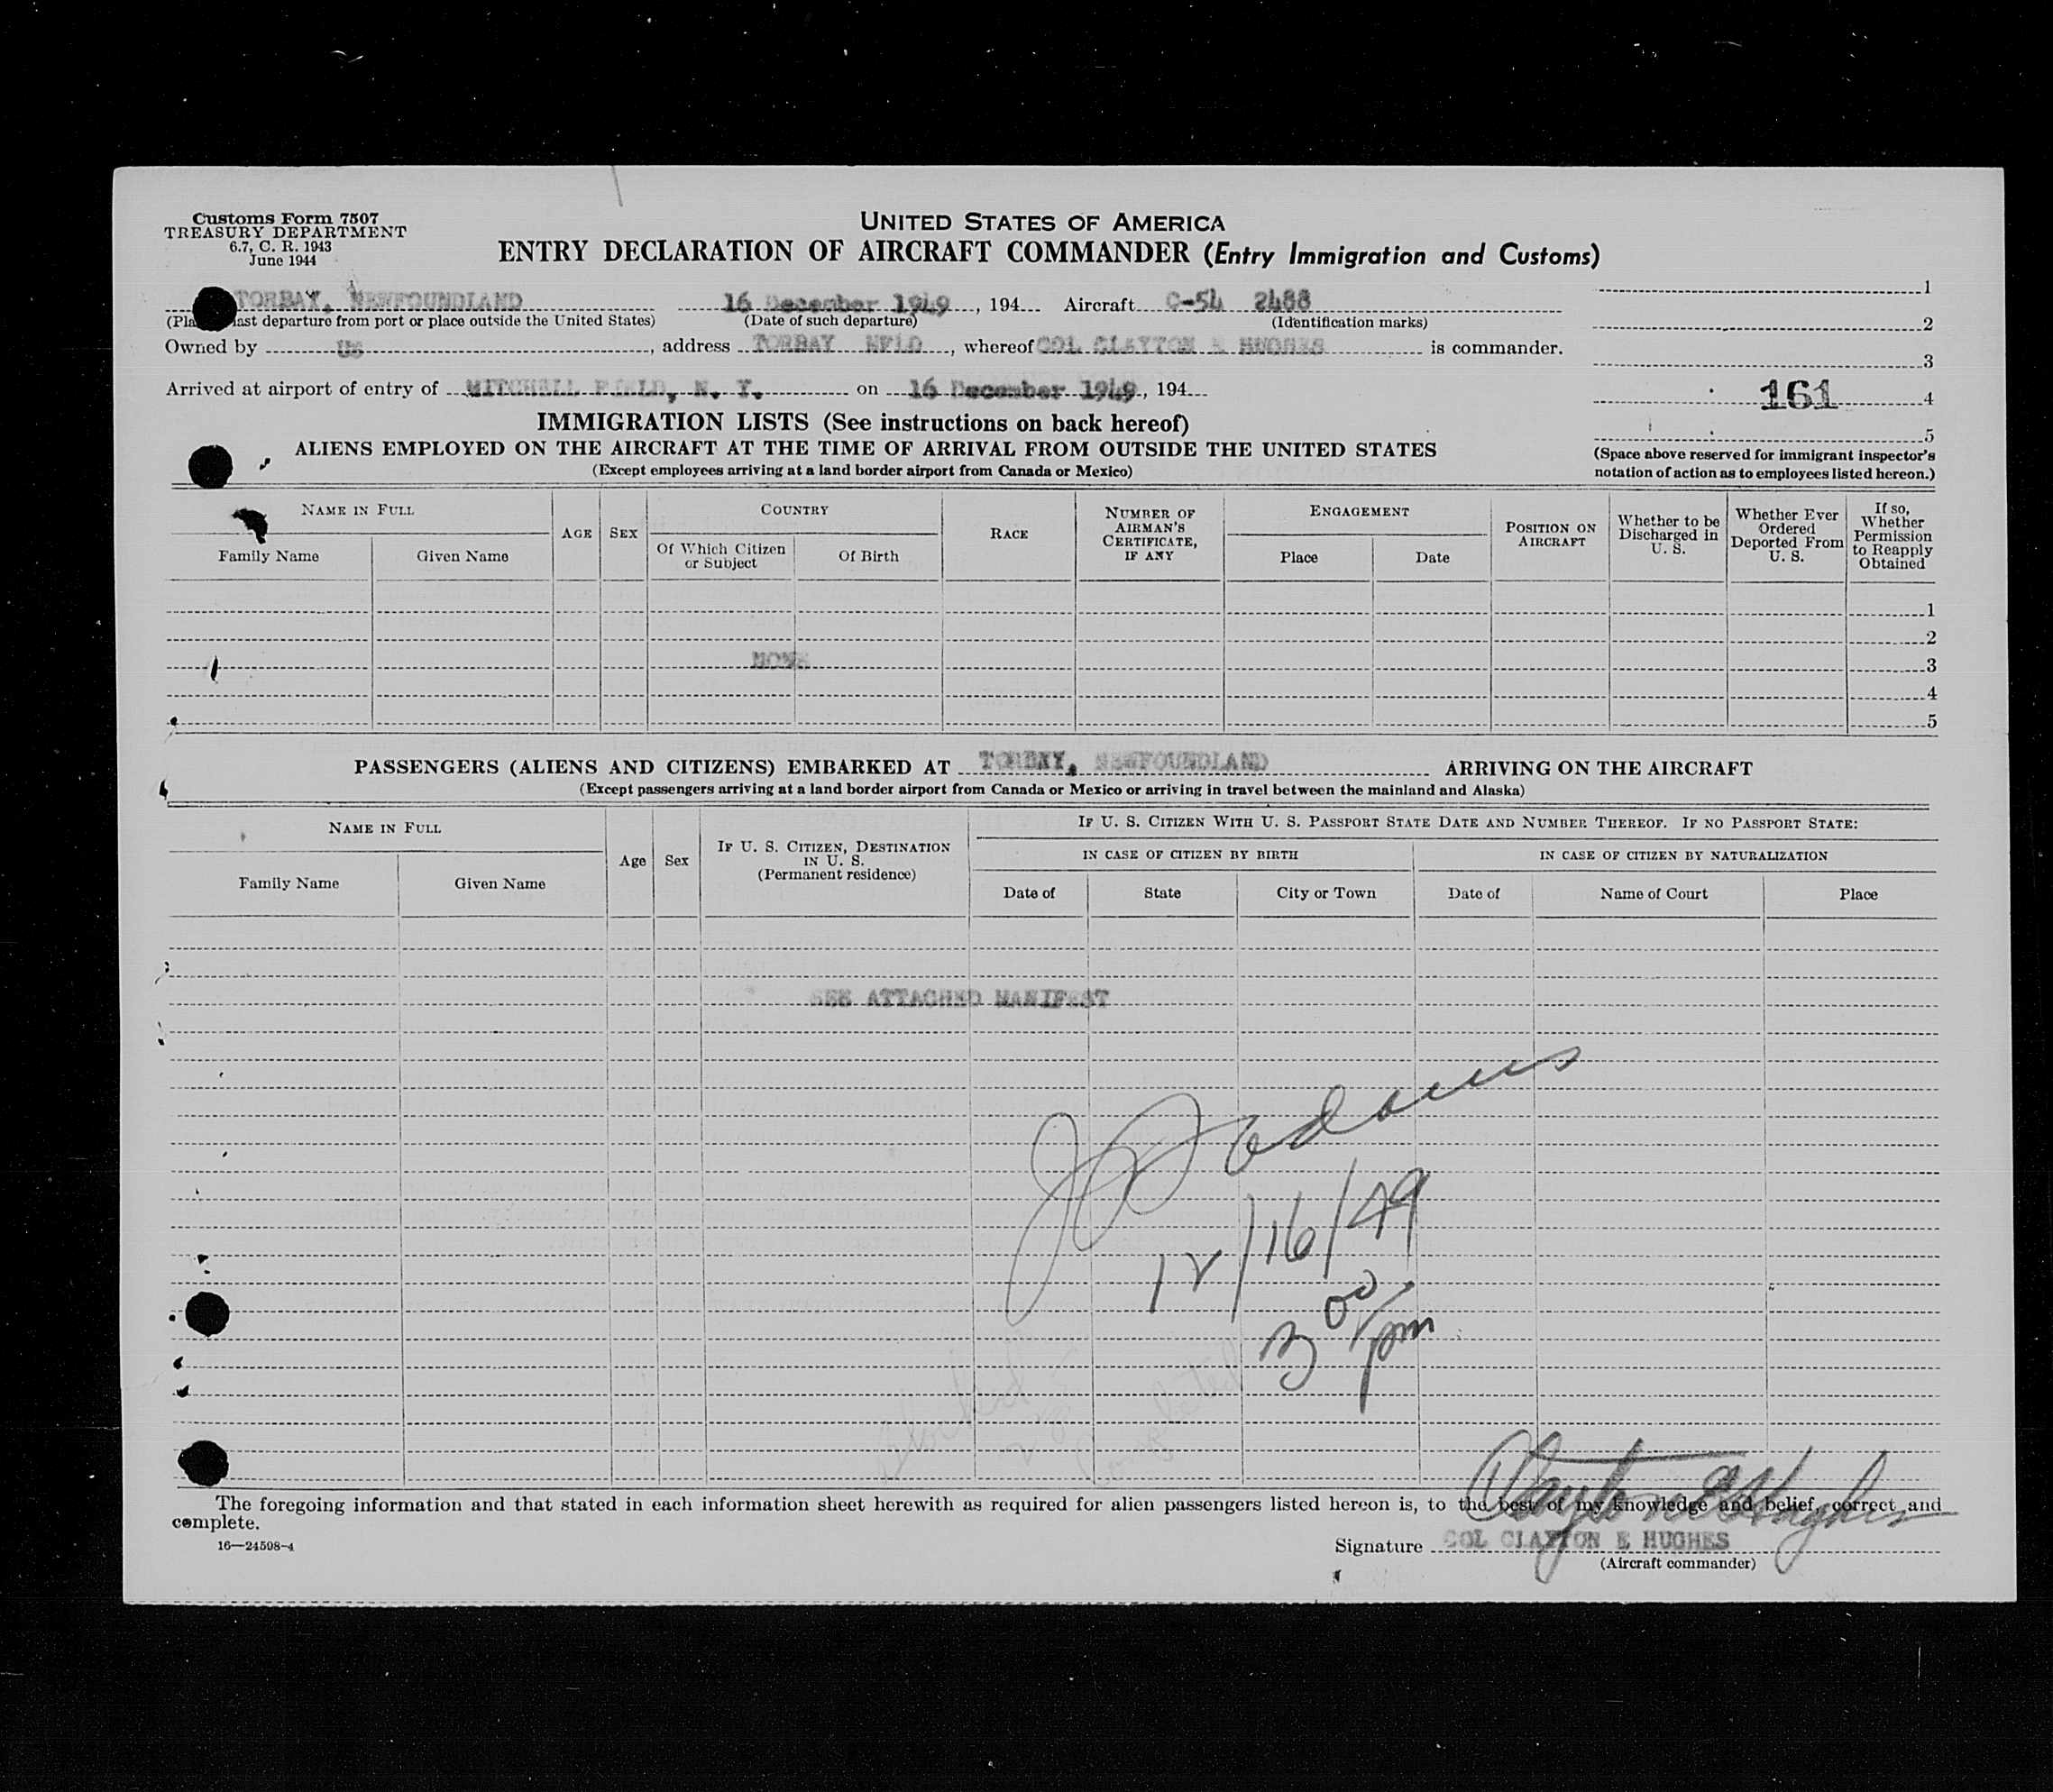 Customs Form 7507
TREASURY DEPARTMENT
6.7, C. R. 1943
June 1944
UNITED STATES OF AMERICA
ENTRY DECLARATION OF AIRCRAFT COMMANDER (Entry Immigration and Customs)
TORBAY, NEWFOUNDLAND 16 December 1949, 194 Aircraft C-54 2488
(Pla last departure from port or place outside the United States) (Date of such departure) (Identification marks)
Owned by US, address TORBAY NFLD, whereof COL CLAYTON E HUGHES is commander.
Arrived at airport of entry of MITCHELL FIELD, N. Y. on 16 December 1949, 194
1
2
3
161 4
5
(Space above reserved for immigrant inspector's
notation of action as to employees listed hereon.)
IMMIGRATION LISTS (See instructions on back hereof)
ALIENS EMPLOYED ON THE AIRCRAFT AT THE TIME OF ARRIVAL FROM OUTSIDE THE UNITED STATES
(Except employees arriving at a land border airport from Canada or Mexico)
NAME IN FULL
Family Name
Given Name
AGE
SEX
COUNTRY
Of Which Citizen
or Subject
Of Birth
RACE
NUMBER OF
AIRMAN'S
CERTIFICATE,
IF ANY
ENGAGEMENT
Place
Date
POSITION ON
AIRCRAFT
Whether to be
Discharged in
U. S.
Whether Ever
Ordered
Deported From
U. S.
If so,
Whether
Permission
to Reapply
Obtained
1
2
NONE 3
4
5
PASSENGERS (ALIENS AND CITIZENS) EMBARKED AT TORBAY, NEWFOUNDLAND ARRIVING ON THE AIRCRAFT
(Except passengers arriving at a land border airport from Canada or Mexico or arriving in travel between the mainland and Alaska)
NAME IN FULL
Family Name
Given Name
Age
Sex
IF U. S. CITIZEN, DESTINATION
IN U. S.
(Permanent residence)
IF U. S. CITIZEN WITH U. S. PASSPORT STATE DATE AND NUMBER THEREOF. IF NO PASSPORT STATE:
IN CASE OF CITIZEN BY BIRTH
IN CASE OF CITIZEN BY NATURALIZATION
Date of
State
City or Town
Date of
Name of Court
Place
SEE ATTACHED MANIFEST
Adams
12/16/49
3 00 pm
Clayton E Hughes
The foregoing information and that stated in each information sheet herewith as required for alien passengers listed hereon is, to the best of my knowledge and belief, correct and
complete.
16—24598-4
Signature COL CLAYTON E HUGHES
(Aircraft commander)